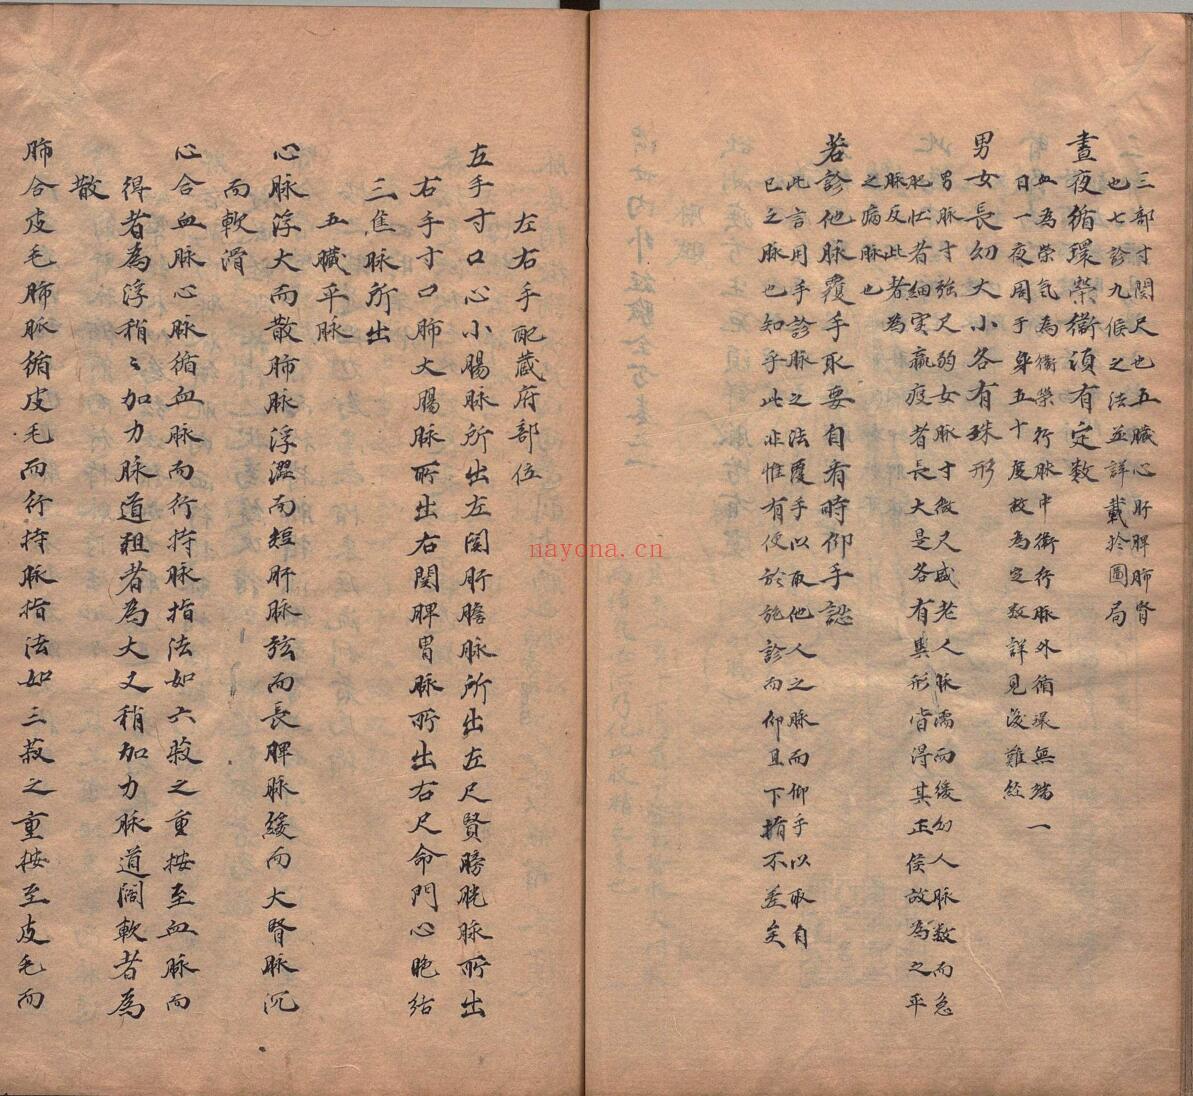 三部寸関尺也五臓心肝脾肺腎
也七診九候之法並詳載於圖局
晝夜循環榮衛須有定数
血為榮氣為衛榮行脉中衛行脉外循環無端一
日一夜周于身五十度故為定数詳見後難経
男女長幼大小各有殊形
男脉寸強尺弱女脉寸微尺盛老人脉濡而緩幼人脉数而急
肥壮者細実羸瘦者長大是各有異形皆得其正候故為之平
脉反此者為
之病脉也
若診他脉覆手取要自看時仰手認
此言用手診脉之法覆手以取他人之脉而仰手以取自
已之脉也知乎此非惟有便於施診而仰且下指不差矣
左右手配蔵府部位
左手寸口心小腸脉所出左関肝膽脉所出左尺腎膀胱脉所出
右手寸口肺大腸脉所出右関脾胃脉所出右尺命門心胞絡
三焦脉所出
五臓平脉
心脉浮大而散肺脉浮澀而短肝脉弦而長脾脉緩而大腎脉沉
而軟滑
心合血脉心脉循血脉而行持脉指法如六菽之重按至血脉而
得者為浮稍〻加力脉道粗者為大又稍加力脉道闊軟者為
散
肺合皮毛肺脈循皮毛而行持脉指法如三菽之重按至皮毛而
nayona.cn